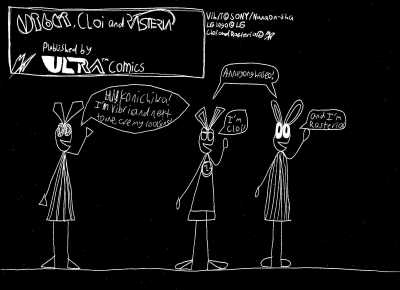 Vibri, Cloi and Rasteria
Published by
ULTRA Comics
Vibri © SONY/NanaOn-Sha
LG logo © LG
Cloi and Rasteria ©
Konichiwa!
I'm Vibri and next
to me, are my cousins!
Annyonghaseo!
I'm
Cloi!
and I'm
Rasteria!